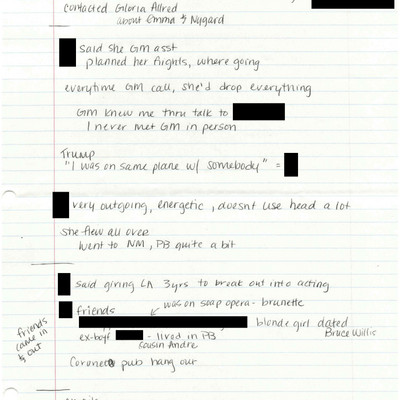 contacted Gloria Allred
about Emma & Nygard
said she GM asst
planned her flights, where going
everytime GM call, she'd drop everything
GM knew me thru talk to
I never met GM in person
Trump
"I was on same plane w/ somebody" =
very outgoing, energetic, doesnt use head a lot
she flew all over
went to NM, PB quite a bit
said giving LA 3yrs to break out into acting
was on soap opera - brunette
friends
blonde girl dated
Bruce Willis
ex-boyf - lived in PB
cousin Andre
friends
came in
& out
pub hang out